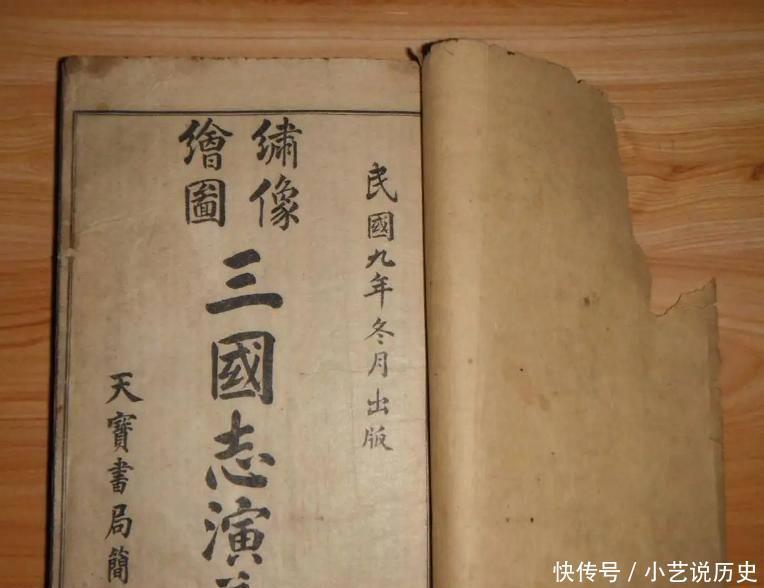 民國九年冬月出版
繡像
繪圖
三國志演
天寶書局簡
快传号 / 小艺说历史